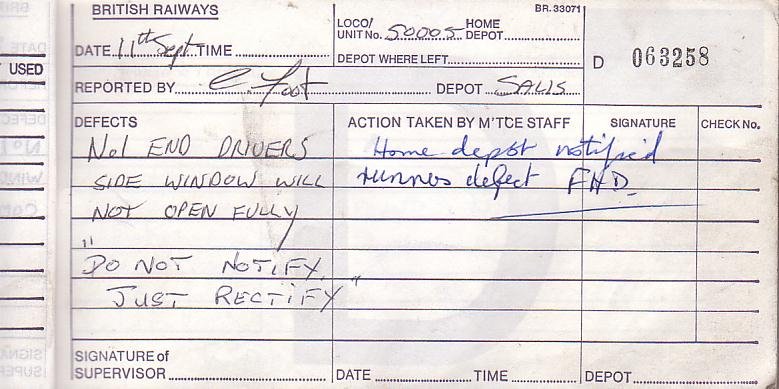 BRITISH RAIWAYS
BR. 33071
DATE 11th Sept TIME
LOCO/ UNIT No. 50005 HOME DEPOT
DEPOT WHERE LEFT
D 063258
USED
REPORTED BY C. Foot DEPOT SALIS
DEFECTS
ACTION TAKEN BY M'TCE STAFF
SIGNATURE
CHECK No.
No1 END DRIVERS
SIDE WINDOW WILL
NOT OPEN FULLY
"DO NOT NOTIFY,
JUST RECTIFY"
Home depot notified
runners defect FHD.
SIGNATURE of SUPERVISOR
DATE TIME DEPOT